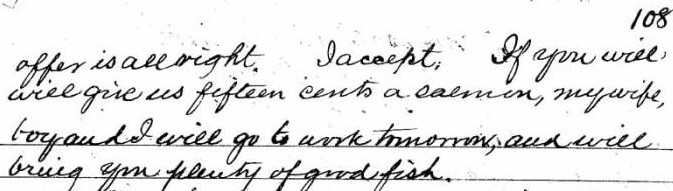 108
offer is all right. I accept. If you will
will give us fifteen cents a salmon, my wife,
boy and I will go to work tomorrow, and will
bring you plenty of good fish.